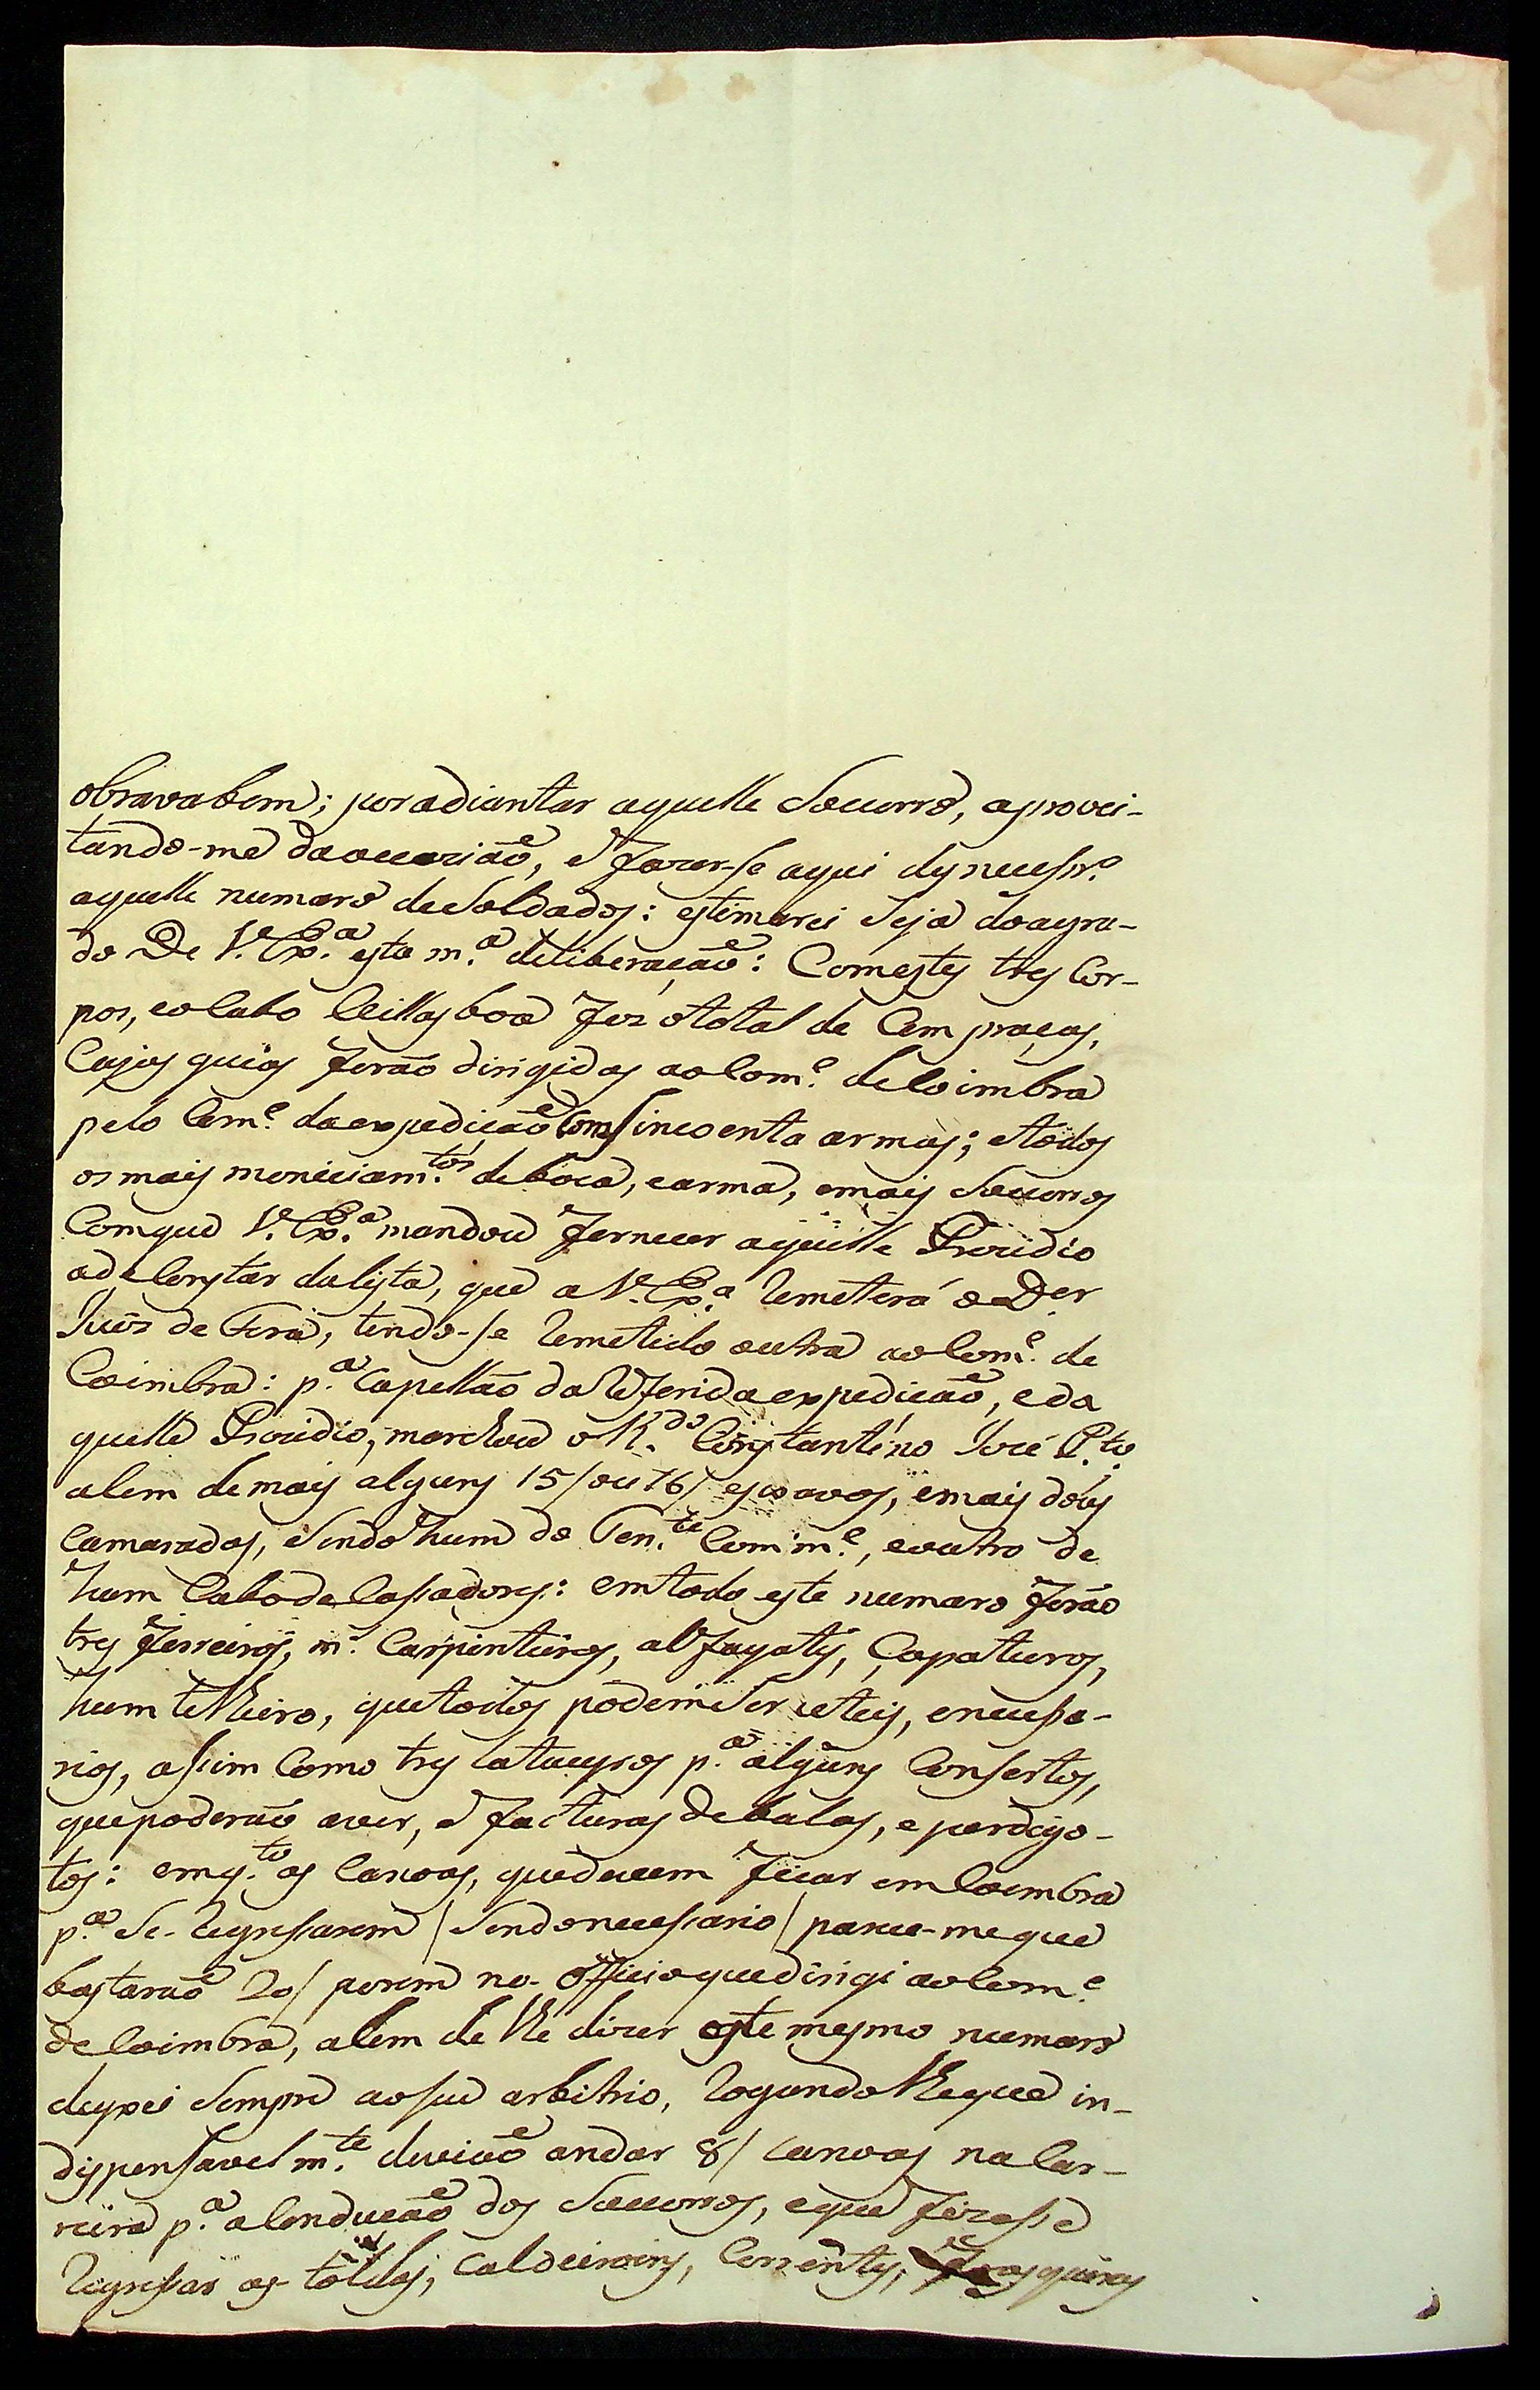 obrava bem; por adiantar aquelle Socurro, aprovei-
tando-me da ocazião, e fazer-se aqui desnecessr.º
aquelle numaro de Soldados: estimarei Seja do agra-
do De V. Ex.ª esta m.ª deliberação: Com estes tres Cor-
pos, e o Cabo Villasboa fez o total de Cem praças,
Cujas guias forão dirigidas ao Com.e de Coimbra
pelo Com.e da expedição Com Sincoenta armas; e todos
os mais moniciam.tos de boca, e arma, e mais Socurros
Com que V. Ex.ª mandou fornecer aquelle Prezidio
ad e Constar da lista, que a V. Ex.ª Remeterá o Der
Juis de Fora, tendo-se Remetido outra ao Com.e de
Coimbra: p.ª Capellão da Referida expedicão, e da
quelle Prezidio, marchou o R.do Constantino José P.to
alem de mais alguns 15/ou 16/ escravos, e mais dous
Camaradas, Sendo hum do Ten.te Comm.e, e outro de
hum Cabo de Cassadores: em todo este numaro forão
tres ferreiros, m.s Carpinteiros, alfayates, Çapateiros,
hum telheiro, que todos podem Ser uteis, e necessa-
rios, assim Como tres Catueyros p.ª alguns Consertos,
que poderão aver, e facturas de balas, e perdigo-
tos: em q.to as Canoas, que devem ficar em Coimbra
p.ª Se-Regressarem /Sendo necessario/ parece-me que
bastarão 20/ porem no-Officio que dirigi ao Com.e
de Coimbra, alem de lhe dizer este mesmo numaro
deyxei Sempre ao seu arbitrio, Rogando lhe que in-
dispensavelm.te devião andar 8/ Canoas na Car-
reira p.ª a Condução dos Socurros, e que fizesse
Regressar as-toldas, Caldeiroins, Correntes, frasqueiras